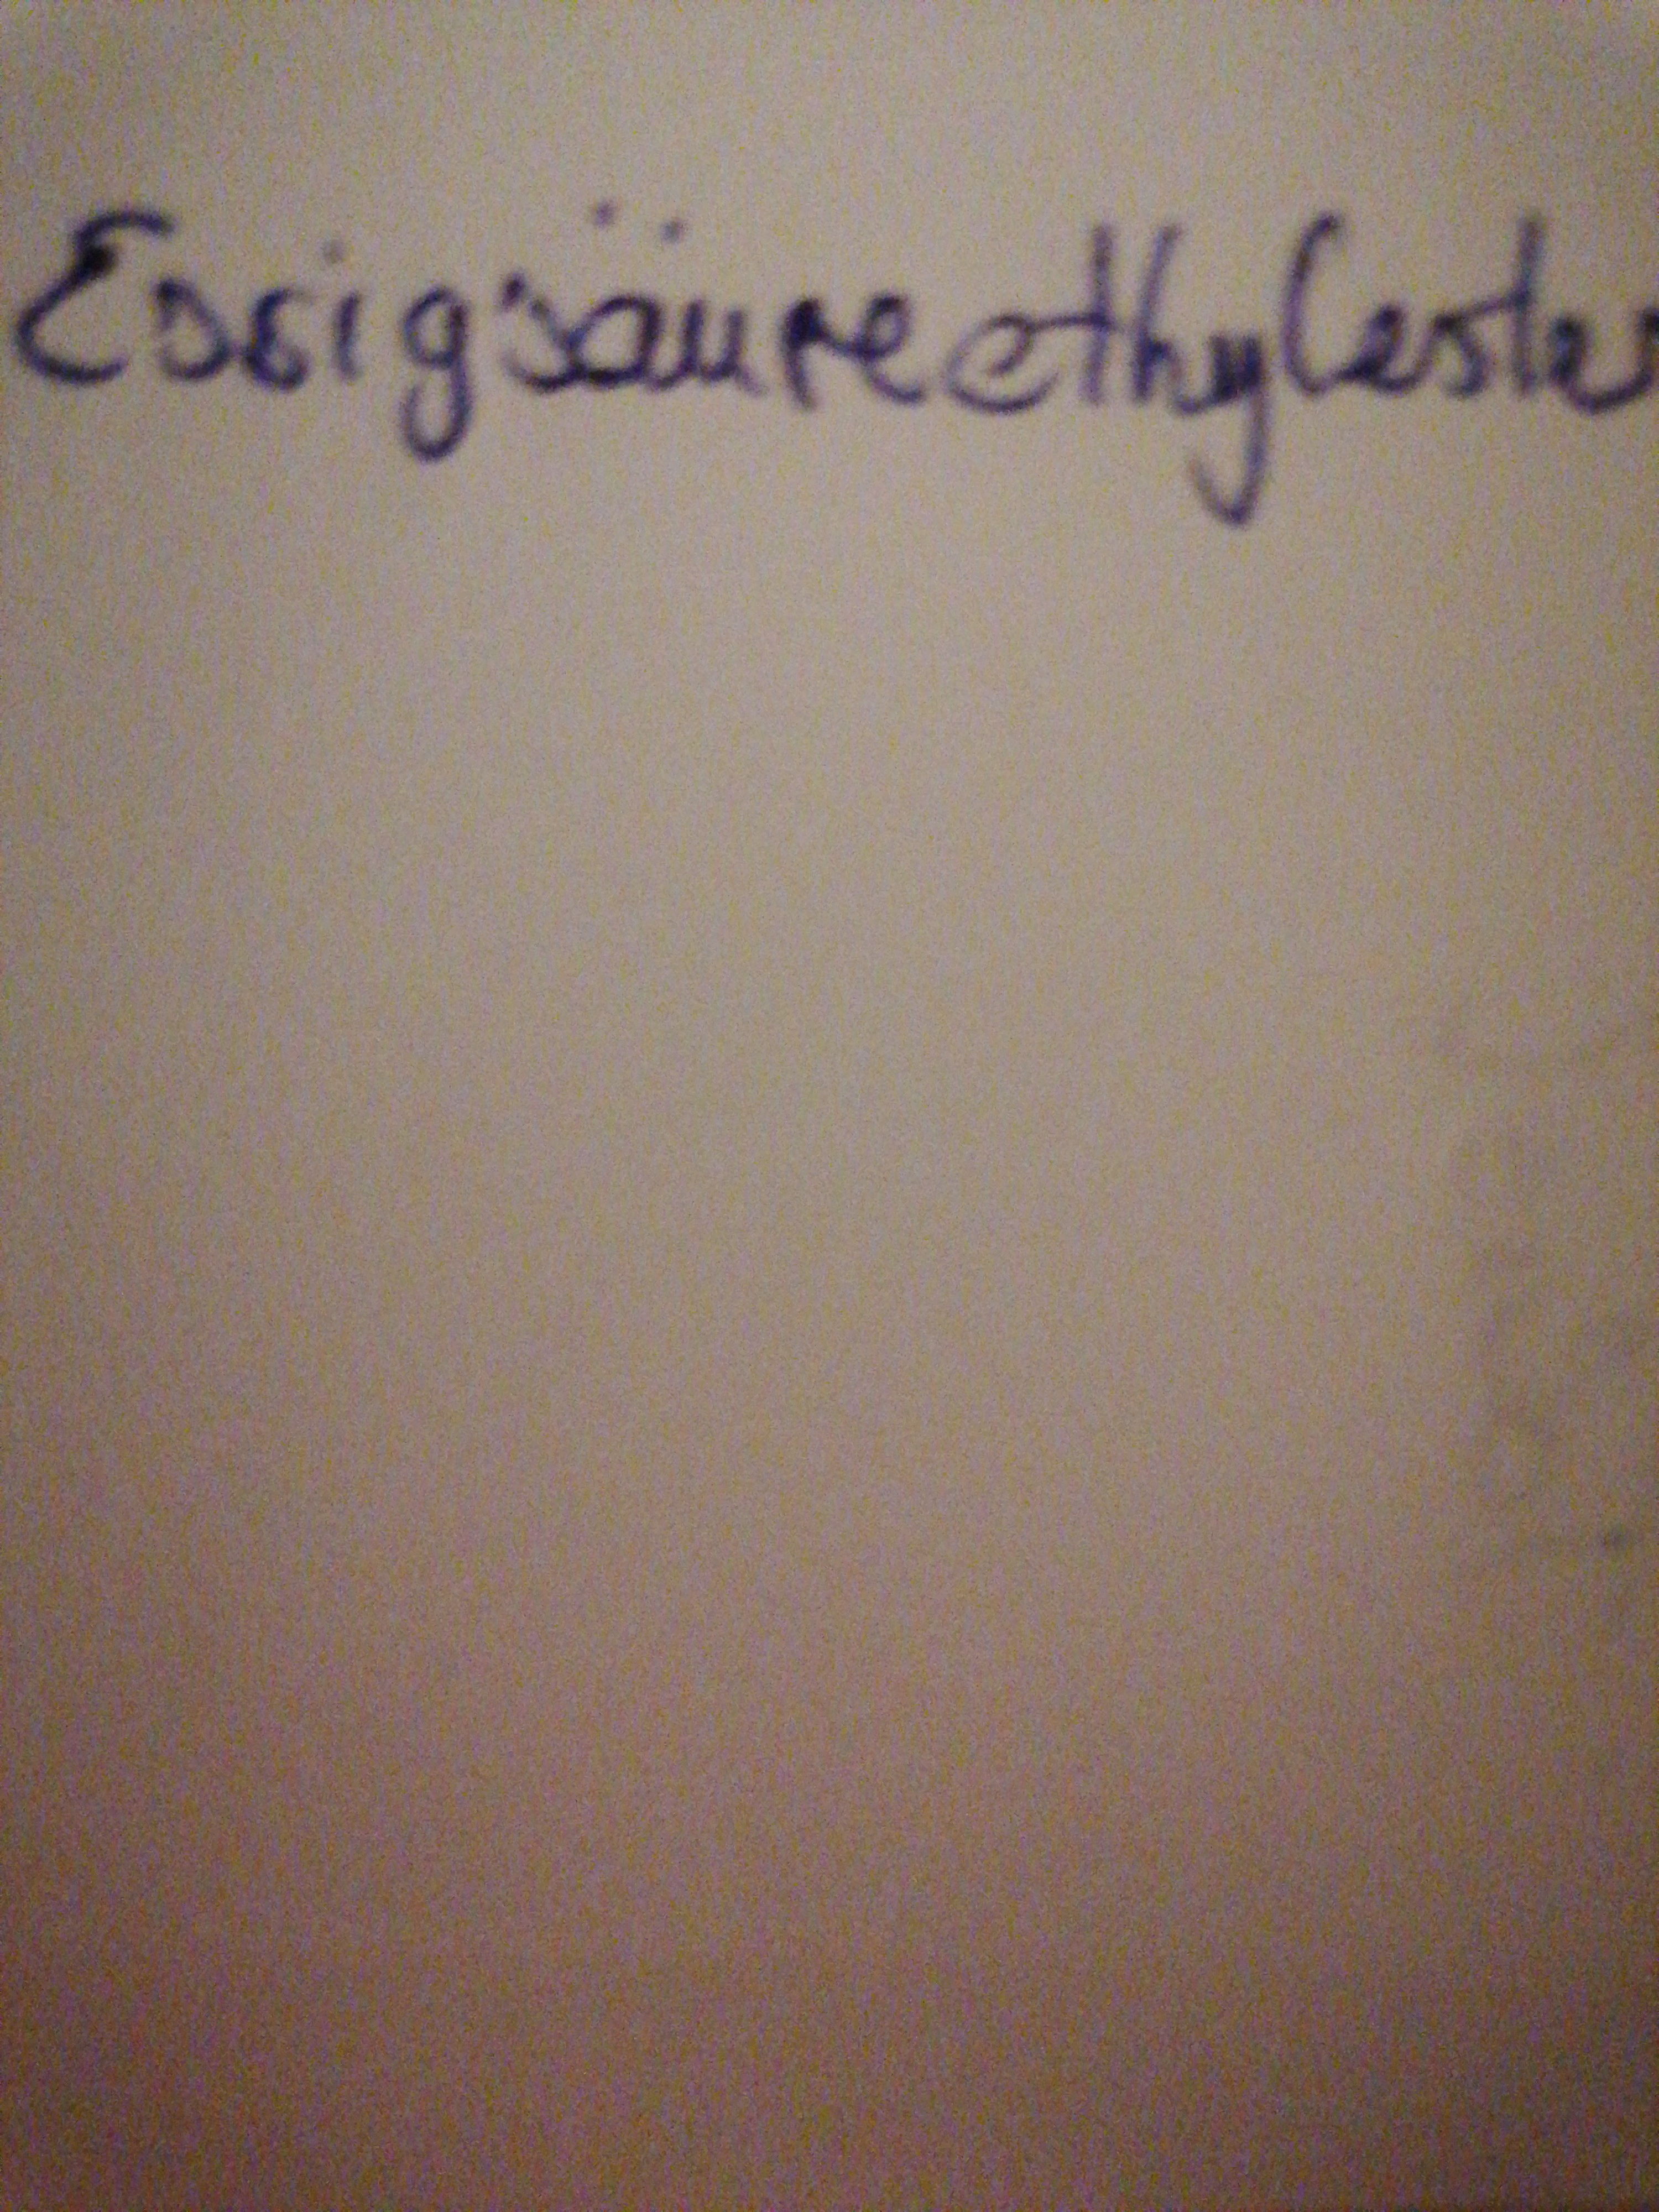 Essigsäureethylester